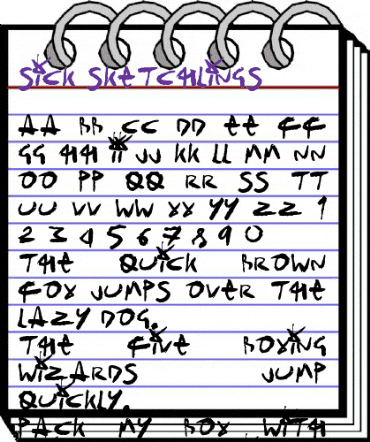 SICK SKETCHLINGS
AA BB CC DD EE FF
GG HH II JJ KK LL MM NN
OO PP QQ RR SS TT
UU VV WW XX YY ZZ 1
2 3 4 5 6 7 8 9 0
THE QUICK BROWN
FOX JUMPS OVER THE
LAZY DOG.
THE FIVE BOXING
WIZARDS JUMP
QUICKLY.
PACK MY BOX WITH